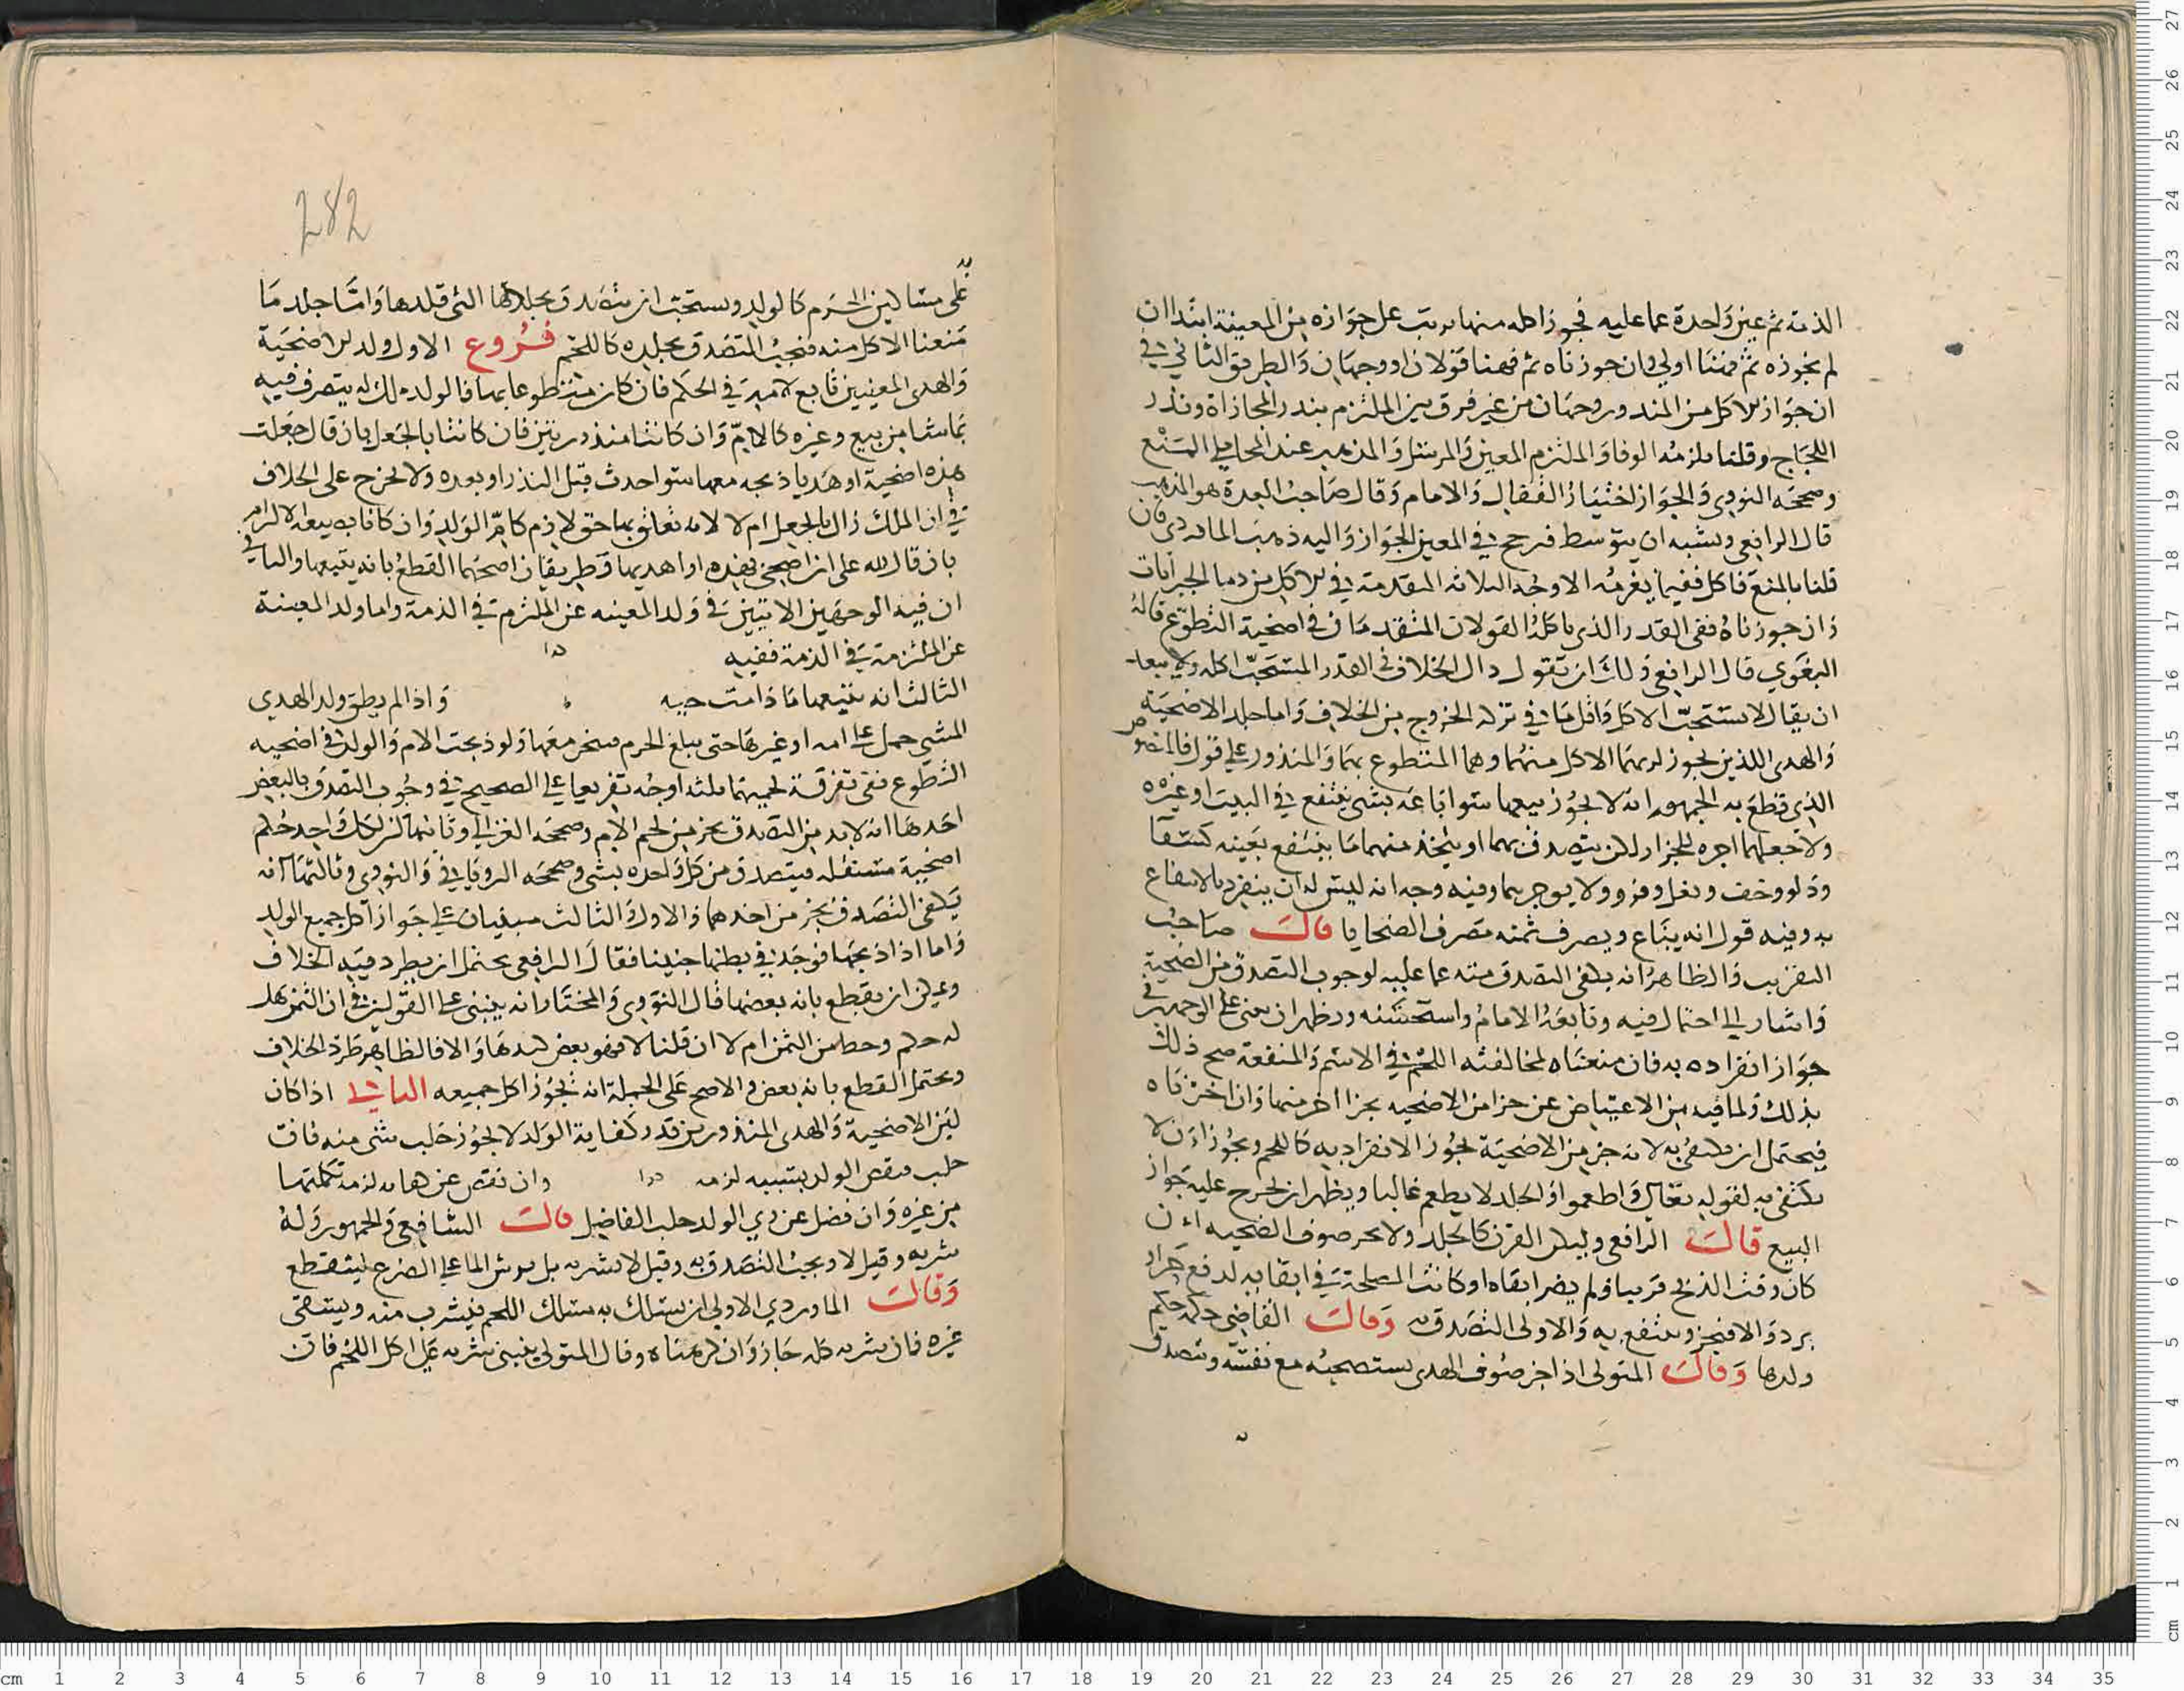 الذمة ثم عين واحدة عما عليه في جوز اكله منها يرتب على جوازه من المعينة ابتدا ان
لم نجوزه ثم فهنا اولى وان جوزناه ثم فههنا قولان او وجهان والطريق الثاني
ان جواز الاكل من المنذور وجهان من غير فرق بين الملتزم بنذر المجازاة ونذر
اللجاج وقلنا يلزمه الوفا والملتزم المعين والمرسل والمذهب عند المحاملي المنع
وصححه النووي والجواز اختيار القفال والامام وقال صاحب العدة هو المذهب
قال الرافعي ويشبه ان يتوسط فيرجح في المعين الجواز واليه ذهب الماوردي فان
قلنا بالمنع فاكل ففيما يغرمه الاوجه الثلاثة المتقدمة في الاكل من دما الجبرانات
وان جوزناه ففي القدر الذي ياكله القولان المتقدمان في اضحية التطوع قاله
البغوي قال الرافعي ولك ان تقول ذاك الخلاف في القدر المستحب اكله ولا يبعد
ان يقال لا يستحب الاكل واقل ما في تركه الخروج من الخلاف واما جلد الاضحية
والهدي اللذين يجوز الاكل منهما وهما المتطوع بهما والمنذور على قول فالمنصوص
الذي قطع به الجمهور انه لا يجوز بيعهما سوا باعه بشي ينتفع في البيت او غيره
ولا جعلهما اجرة للجزار لكن يتصدق بهما او يتخذ منهما ما ينتفع بعينه كسقا
ودلو وخف ونعل وفرو ولا يوجرهما وفيه وجه انه ليس له ان ينفرد بالانتفاع
به وفيه قول انه يباع ويصرف ثمنه مصرف الضحايا قال صاحب
التقريب والظاهر انه يكفي التصدق منه عما عليه لوجوب التصدق من الضحية
واشار الى احتمال فيه وتابعه الامام واستحسنه ويظهر ان يبنى على الوجهين في
جواز انفراده به فان منعناه لمخالفته اللحم في الاسم والمنفعة صح ذلك
بذلك ولما فيه من الاعتياض عن جزا من الاضحية بجزا اخر منها وان اخترناه
فيحتمل ان يكتفى به لانه جزء من الاضحية يجوز الانفراد به كاللحم ويجوز ان لا
يكتفى به لقوله تعالى واطعموا والجلد لا يطعم غالبا ويظهر ان يخرج عليه جواز
البيع قال الرافعي وليكن القرن كالجلد ولا يجز صوف الضحية ان
كان وقت الذبح قريبا ولم يضر ابقاه او كانت المصلحة في ابقايه لدفع حر او
برد والا فيجز وينتفع به والاولى التصدق به وقال القاضي حكمه حكم
ولدها وقال المتولي اذا جز صوف الهدي يستصحبه مع نفسه ويتصدق
به
282
على مساكين الحرم كالولد ويستحب ان يتصدق بجلالها التي قلدها واما جلد ما
منعنا الاكل منه فيجب التصدق بجلده كاللحم فروع الاول ولد الاضحية
والهدي المعينين تابع لاميه في الحكم فان كان متطوعا بهما فالولد ملك له يتصرف فيه
بما شا من بيع وغيره كالام وان كانتا منذورتين فان كانتا بالجعل بان قال جعلت
هذه اضحية او هديا ذبحه معها سوا حدث قبل النذر او بعده ولا يخرج على الخلاف
في ان الملك زال بالجعل ام لا لانه تعلق بها حق لازم كام الولد وان كانا بصيغة الالزام
بان قال لله علي ان اضحي بهذه او اهديها فطريقان اصحهما القطع بانه يتبعها والثاني
ان فيه الوجهين الاتيين في ولد المعينه عن الملتزم في الذمة واما ولد المعينة
عن الملتزمة في الذمة ففيه
الثالث انه يتبعها ما دامت حيه واذا لم يطق ولد الهدي
المشي حمل على امه او غيرها حتى يبلغ الحرم فينحر معها ولو ذبحت الام والولد في اضحيه
التطوع ففي تفرقة لحميهما ثلثه اوجه تفريعا على الصحيح في وجوب التصدق بالبعض
احدها انه لا بد من التصدق بجز من لحم الام وصححه الغزالي وثانيهما ان لكل واحد حكم
اضحية مستقلة فيتصدق من كل واحدة بشي وصححه الروياني والنووي وثالثها انه
يكفي التصدق بجز من احدهما والاول والثالث مبنيان على جواز اكل جميع الولد
واما اذا ذبحها فوجد في بطنها جنينا فقال الرافعي يحتمل ان يطرد فيه الخلاف
ويمكن ان يقطع بانه بعضها قال النووي والمختار انه يبنى على القولين في ان الثمن هل
له حكم وحط من الثمن ام لا ان قلنا لا فهو بعض كيدها والا فالظاهر طرد الخلاف
ويحتمل القطع بانه بعض والاصح على الجملة انه يجوز اكل جميعه الثاني اذا كان
لبن الاضحية والهدي المنذورين قدر كفاية الولد لا يجوز حلب شي منه فان
حلب فنقص الولد بسببه لزمه وان نقص عن كفايته لزمه تكملتها
من غيره وان فضل عن ري الولد حلب الفاضل قال الشافعي والجمهور وله
شربه وقيل لا ويجب التصدق به وقيل لا يشربه بل يرش الما على الضرع لينقطع
وقال الماوردي الاولى ان يسلك به مسلك اللحم فيشرب منه ويسقي
غيره فان شربه كله جاز وان كرهناه وقال المتولي ينبني شربه على اكل اللحم فان